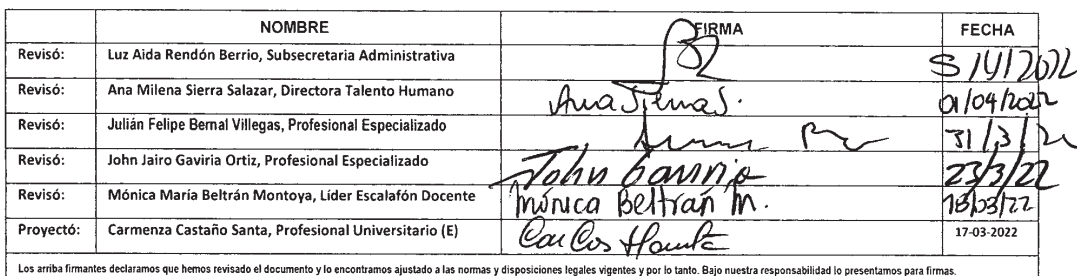 NOMBRE FIRMA FECHA
Revisó: Luz Aida Rendón Berrio, Subsecretaria Administrativa 5/4/2022
Revisó: Ana Milena Sierra Salazar, Directora Talento Humano Ana Sierra S. 01/04/2022
Revisó: Julián Felipe Bernal Villegas, Profesional Especializado 31/3/
Revisó: John Jairo Gaviria Ortiz, Profesional Especializado John Gaviria 23/3/22
Revisó: Mónica María Beltrán Montoya, Líder Escalafón Docente Mónica Beltrán M. 18/03/22
Proyectó: Carmenza Castaño Santa, Profesional Universitario (E) 17-03-2022
Los arriba firmantes declaramos que hemos revisado el documento y lo encontramos ajustado a las normas y disposiciones legales vigentes y por lo tanto. Bajo nuestra responsabilidad lo presentamos para firmas.